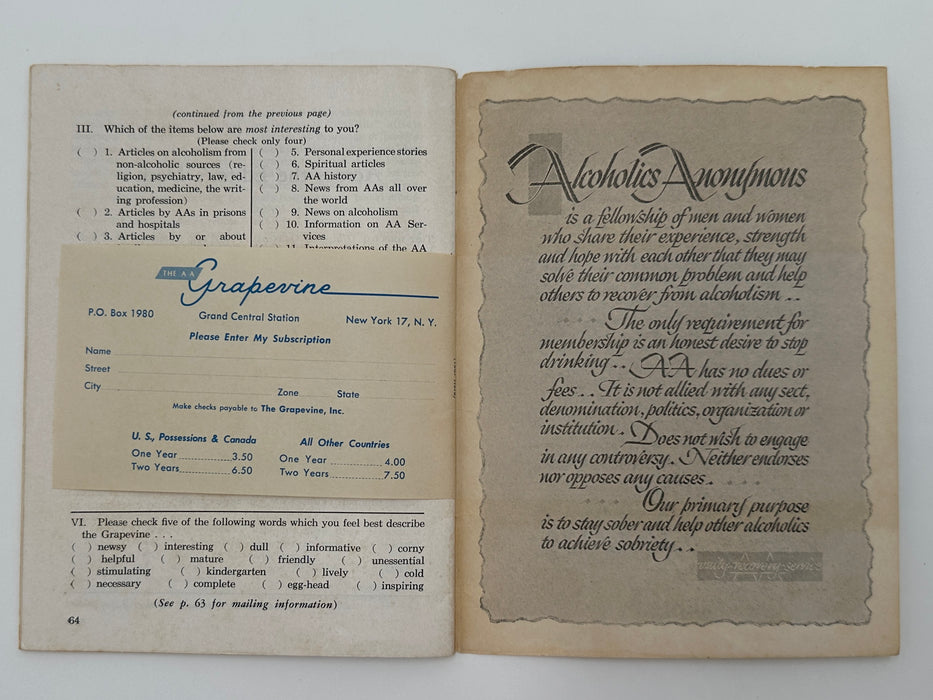 (continued from the previous page)
III. Which of the items below are most interesting to you?
(Please check only four)
( ) 1. Articles on alcoholism from
non-alcoholic sources (re-
ligion, psychiatry, law, ed-
ucation, medicine, the writ-
ing profession)
( ) 2. Articles by AAs in prisons
and hospitals
( ) 3. Articles by or about
( ) 5. Personal experience stories
( ) 6. Spiritual articles
( ) 7. AA history
( ) 8. News from AAs all over
the world
( ) 9. News on alcoholism
( ) 10. Information on AA Ser-
vices
11. Interpretations of the AA
THE AA
Grapevine
P.O. Box 1980 Grand Central Station New York 17, N. Y.
Please Enter My Subscription
Name
Street
City Zone State
Make checks payable to The Grapevine, Inc.
U. S., Possessions & Canada
One Year 3.50
Two Years 6.50
All Other Countries
One Year 4.00
Two Years 7.50
VI. Please check five of the following words which you feel best describe
the Grapevine . . .
( ) newsy ( ) interesting ( ) dull ( ) informative ( ) corny
( ) helpful ( ) mature ( ) friendly ( ) unessential
( ) stimulating ( ) kindergarten ( ) lively ( ) cold
( ) necessary ( ) complete ( ) egg-head ( ) inspiring
(See p. 63 for mailing information)
64
Alcoholics Anonymous
is a fellowship of men and women
who share their experience, strength
and hope with each other that they may
solve their common problem and help
others to recover from alcoholism . .
The only requirement for
membership is an honest desire to stop
drinking . . AA has no dues or
fees . . It is not allied with any sect,
denomination, politics, organization or
institution . Does not wish to engage
in any controversy . Neither endorses
nor opposes any causes .
Our primary purpose
is to stay sober and help other alcoholics
to achieve sobriety . .
unity-recovery-service